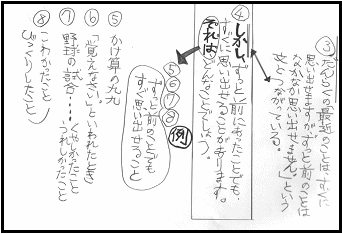 ③だんらくの最近のことは、すぐに
思い出せますが、ずっと前のことは
なかなか思い出せません。」という
文とつながっている。
④しかし、ずっと前にあったことでも、
すぐに思い出せることがあります。
それは、どんなことでしょう。
⑤⑥⑦⑧例
ずっと前のことでも
すぐ思い出せること
⑤かけ算の九九
⑥「覚えなさい」といわれたとき
⑦野球の試合……くやしかったこと
うれしかったこと
⑧こわかったこと
びっくりしたこと